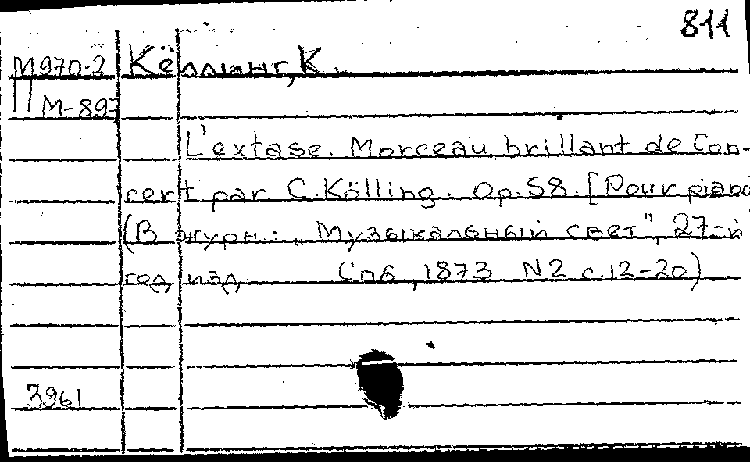 811
М970-2 Кёллинг, К.
П М-897
L'extase. Morceau brillant de Con-
cert par C. Kölling. Op. 58. [Pour piano
(В журн.: „Музыкальный свет", 27-й
год изд. Спб, 1873 N2 с. 12-20)
3961